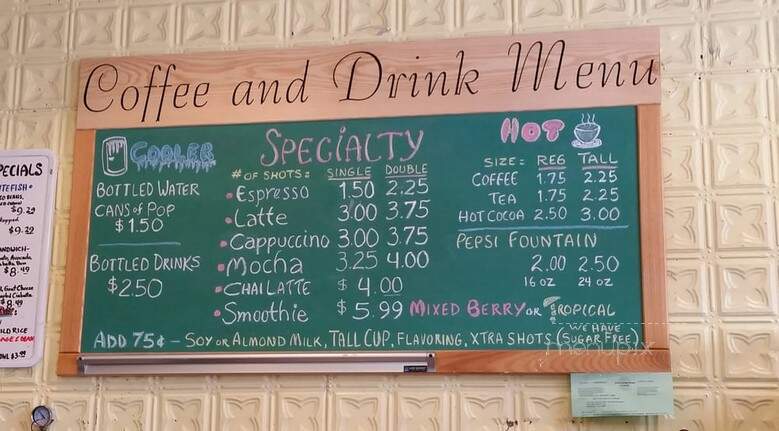 Coffee and Drink Menu
COOLER
BOTTLED WATER
CANS of POP
$1.50
BOTTLED DRINKS
$2.50
SPECIALTY
# OF SHOTS: SINGLE DOUBLE
• Espresso 1.50 2.25
• Latte 3.00 3.75
• Cappuccino 3.00 3.75
• Mocha 3.25 4.00
• CHAI LATTE $ 4.00
• Smoothie $5.99 MIXED BERRY OR TROPICAL
HOT
SIZE: REG TALL
COFFEE 1.75 2.25
TEA 1.75 2.25
HOT COCOA 2.50 3.00
PEPSI FOUNTAIN
2.00 2.50
16 OZ 24 OZ
WE HAVE
ADD 75¢ – SOY OR ALMOND MILK, TALL CUP, FLAVORING, XTRA SHOTS (SUGAR FREE)
menupix
PECIALS
TEFISH
$9.29
$9.29
NDWICH-
$8.49
Goat Cheese
Ciabatta
$8.49
ILD RICE
$3.99